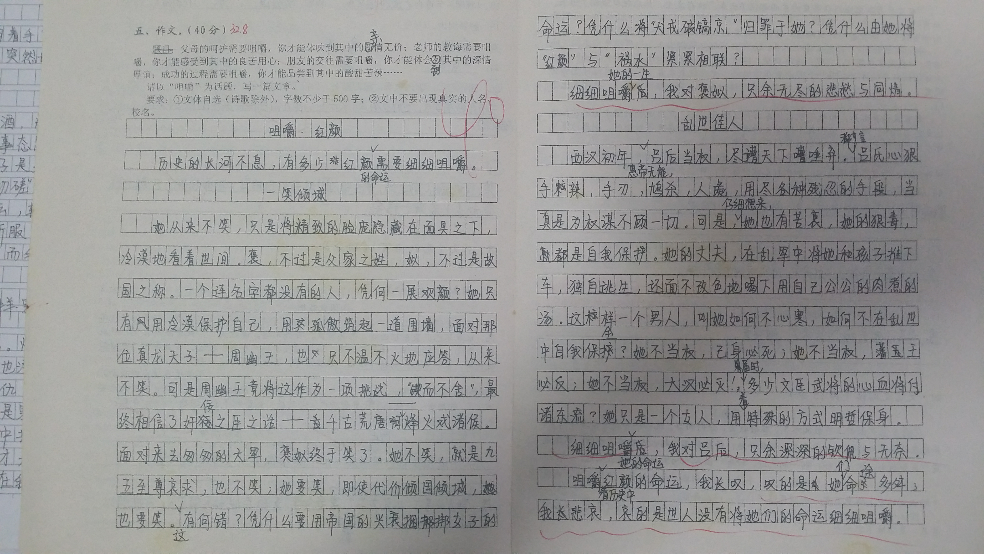 五、作文。(40分)
题目 父母的呵护需要咀嚼,你才能体味到其中的亲情无价;老师的教诲需要咀
嚼,你才能感受到其中的良苦用心;朋友的交往需要咀嚼,你才能体会到其中的深情
厚谊;成功的过程需要咀嚼,你才能品尝到其中的酸甜苦辣……
请以“咀嚼”为话题,写一篇文章。
要求:①文体自选(诗歌除外),字数不少于500字;②文中不要出现真实的人名、
校名。
40
咀嚼 红颜
历史的长河不息,有多少红颜的命运需要细细咀嚼。
一笑倾城
她从来不笑,只是将精致的脸庞隐藏在面具之下,
冷漠地看着世间。褒,不过是众家之姓,姒,不过是故
国之称。一个连名字都没有的人,凭何一展欢颜?她只
有用冷漠保护自己,用孤傲筑起一道围墙,面对那
位真龙天子——周幽王,也只不温不火地应答,从来
不笑。可是周幽王竟将这作为一项挑战,“锲而不舍”,最
终相信了奸佞之臣之话——首千古荒唐烽火戏诸侯。
面对来去匆匆的大军,褒姒终于笑了。她不笑,就是九
五至尊哀求,也不笑;她要笑,即使代价倾国倾城,
也要笑。这有何错?凭什么要用帝国的兴衰捆绑女子的
命运?凭什么将犬戎破镐京”归罪于她?凭什么由她将
“红颜”与“祸水”紧紧相联?
细细咀嚼她的一生后,我对褒姒,只余无尽的悲愁与同情。
乱世佳人
西汉初年,惠帝无能,吕后当权,尽遭天下唾弃。吕氏心狠
手辣,手刃,鸩杀,人彘,用尽各种残忍的手段,当
真是为权谋不顾一切。可是,仔细想来,她也有苦衷,她的狠毒,
都是自我保护。她的丈夫,在乱军中将她和孩子推下
车,独自逃生,还面不改色地喝下用自己公公的肉煮的
汤。这样一个男人,叫她如何不心寒,如何不在乱世
中自我保护?她不当权,己身必死;她不当权,诸王
必反;她不当权,大汉必灭!多少文臣武将的心血将付
诸东流?她只是一个女人,用特殊的方式明哲保身。
细细咀嚼后,我对吕后,只余深深的钦佩与无奈。
咀嚼红颜的命运,我长叹,叹的是她命多舛;
我长悲哀,哀的是世人没有将她们的命运细细咀嚼。